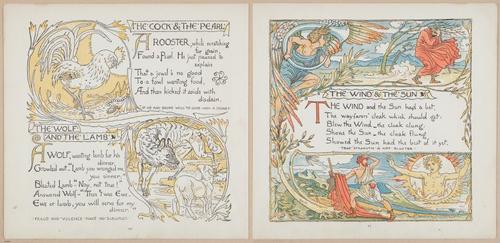 THE COCK & THE PEARL
A ROOSTER, while scratching
for grain,
Found a Pearl. He just paused to
explain
That a jewel's no good
To a fowl wanting food,
And then kicked it aside with
disdain.
IF HE ASK BREAD WILL YE GIVE HIM A STONE?
THE WOLF
AND THE LAMB
A WOLF, wanting lamb for his
dinner,
Growled out—"Lamb you wronged me,
you sinner."
Bleated Lamb—"Nay, not true!"
Answered Wolf—"Then 'twas Ewe,
Ewe or lamb, you will serve for my
dinner."
FRAUD AND VIOLENCE HAVE NO SCRUPLES
THE WIND & THE SUN
THE WIND and the Sun had a bet,
The wayfarers' cloak which should get:
Blew the Wind—the cloak clung:
Shone the Sun—the cloak flung
Showed the Sun had the best of it yet.
TRUE STRENGTH IS NOT BLUSTER